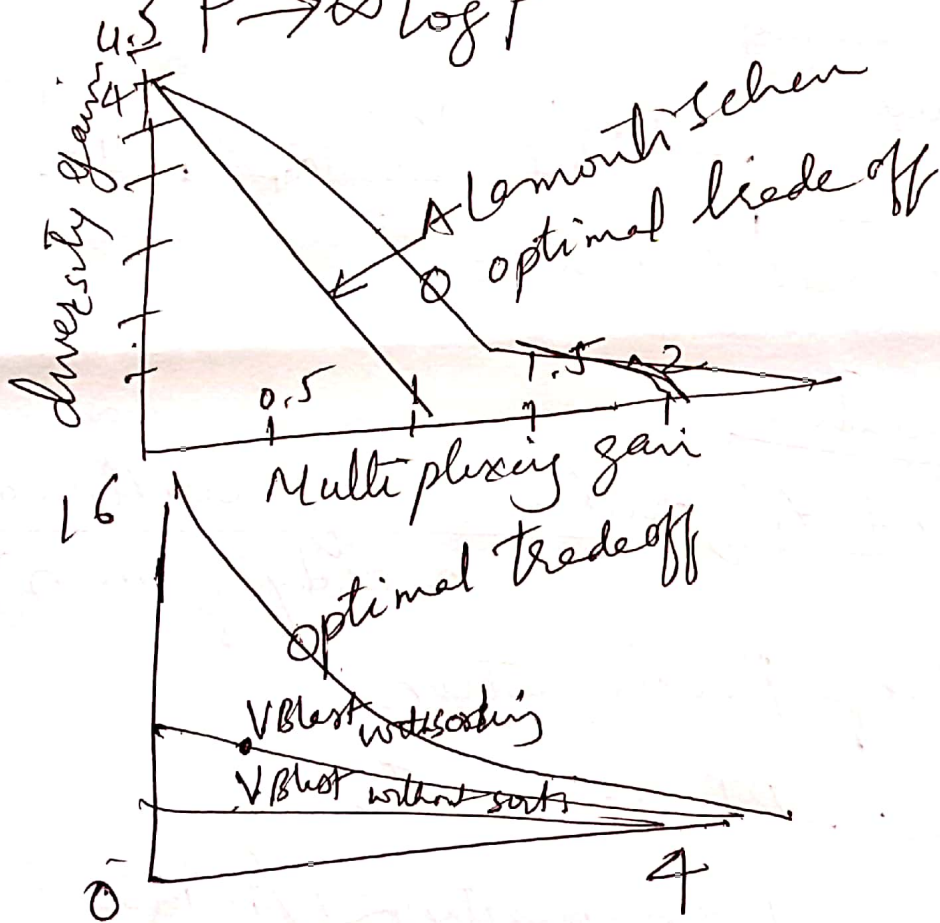 4.5 P → ∞ log P
4
diversity gain
Alamouti Schem
optimal trade off
0.5
1
1.5
2
Multiplexing gain
16
optimal tradeoff
VBlast withsorting
VBlast without sorts
0
4